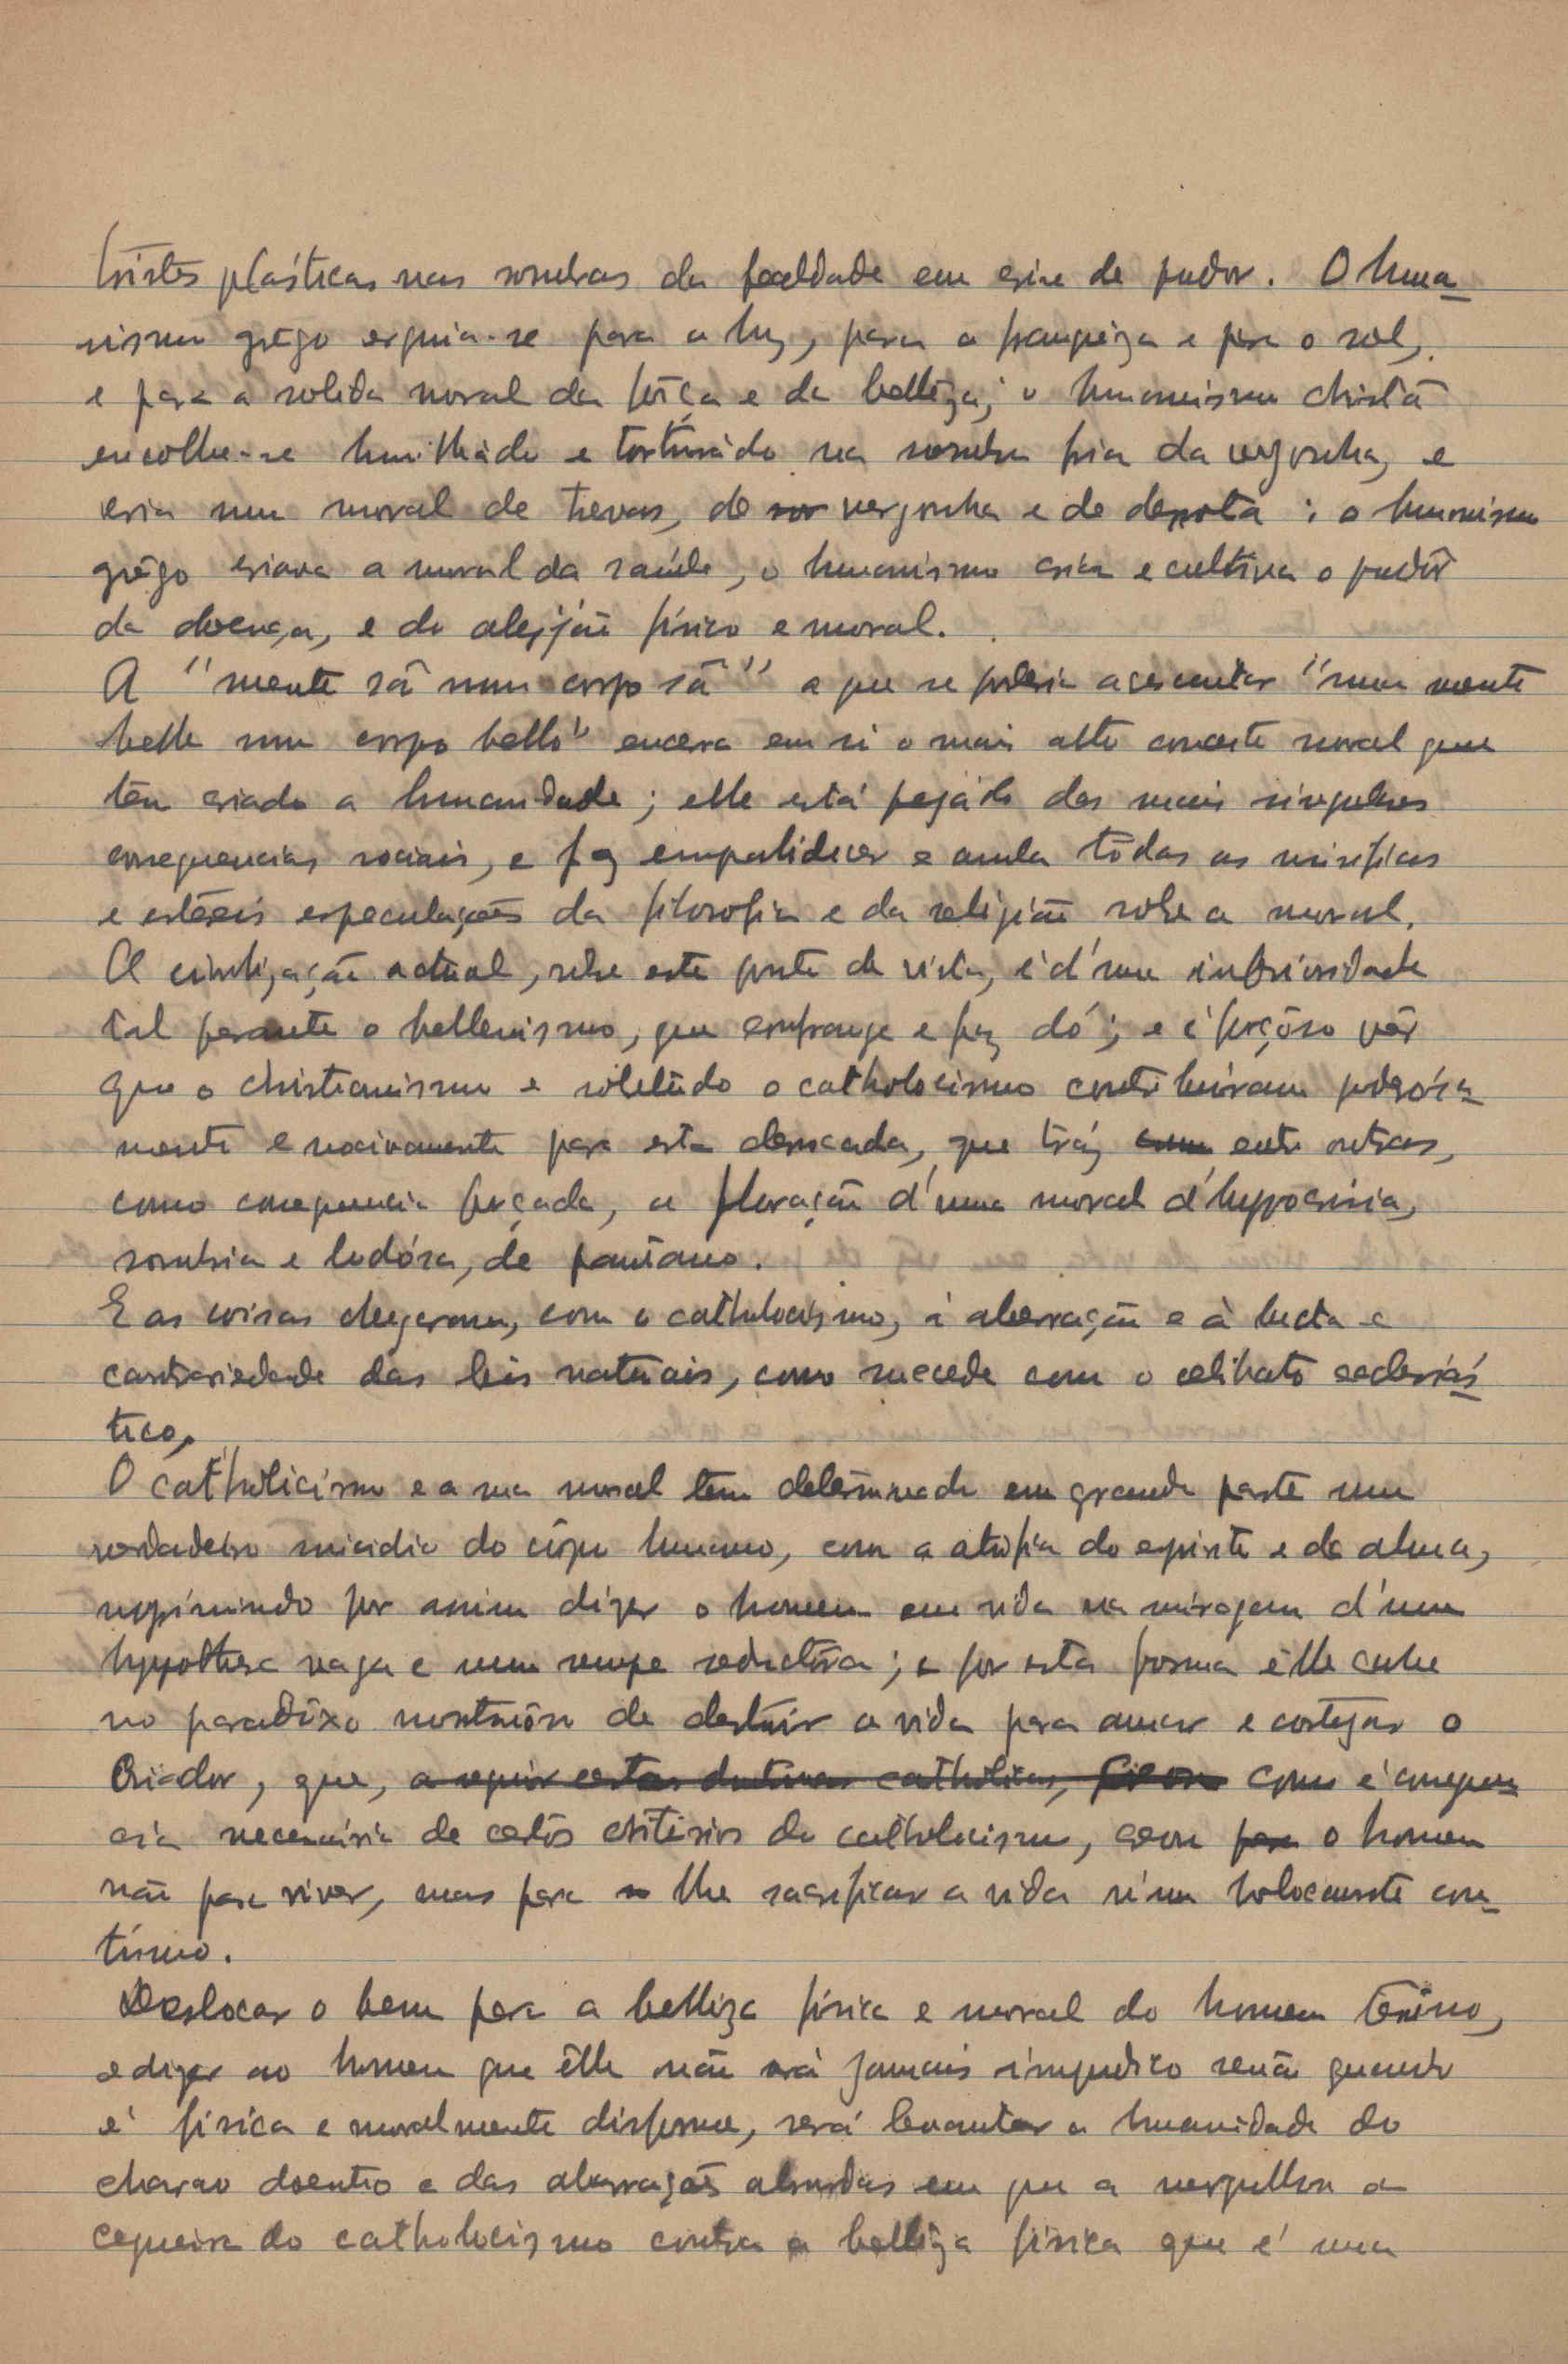 tristes plásticas nas sombras da fealdade em crise de pudor. O huma-
nismo grêgo erguia-se para a luz, para a franquêza e para o sol,
e para a solida moral da fôrça e da bellêza; o humanismo christã
encolhe-se humilhádo e torturádo na sombra fria da vergonha, e
cria uma moral de trevas, de vergonha e de derrota; o humanismo
grêgo criava a moral da saúde, o humanismo cria e cultiva o pudôr
da doença, e do aleijão físico e moral.
A "mente sã num corpo sã" a que se poderia acrescentar "numa mente
bella num corpo bello" encerra em si o mais alto conceito moral que
têm criado a humanidade; elle está pejádo das mais singulares
consequencias sociais, e faz empalidecer e anula tôdas as mirificas
e estéreis especulações da filosofia e da religião sobre a moral.
A civilização actual, sobre este ponto de vista, é d'uma inferioridade
tal perante o hellenismo, que confrange e faz dó; e é forçôso vêr
que o christianismo e sobretúdo o catholocismo contribuíram poderósa-
mente e nocivamente para esta derrocada, que tráz entre outras,
como consequencia forçada, a floração d'uma moral d'hypocrisia,
sombria e lodósa, de pantano.
E as coisas chegaram, com o catholocismo, á aberração e à lucta e
contrariedade das leis naturais, como sucede com o celibato eclesiás-
tico.
O catholicismo e a sua moral tem determinado em grande parte um
verdadeiro suicidio do côrpo humano, com a atrofia do espirito e da alma,
suprimindo por assim dizer o homem em vida na miragem d'uma
hypothese vaga e nem sempre seductôra; e por esta forma êlle cahe
no paradôxo monstruôso de destruir a vida para amar e cortejar o
Criador, que, como é consequen-
cia necessária de certos critérios do catholocismo, creou o homem
não para viver, mas para lhe sacrificar a vida n'um holocausto con-
tínuo.
Deslocar o bem para a bellêza física e moral do homem terreno,
e dizer ao homem que êlle não será jamais impudico senão quando
é física e moralmente disforme, será levantar a humanidade do
charco doentio e das aberrações absurdas em que a mergulhou a
cegueira do catholocismo contra a bellêza física que é uma